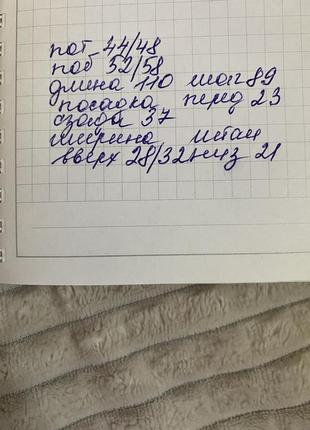 пот 44/48
поб 52/58
длина 110 шаг 89
посадка перед 23
сзади 37
ширина штан
вверх 28/32 низ 21